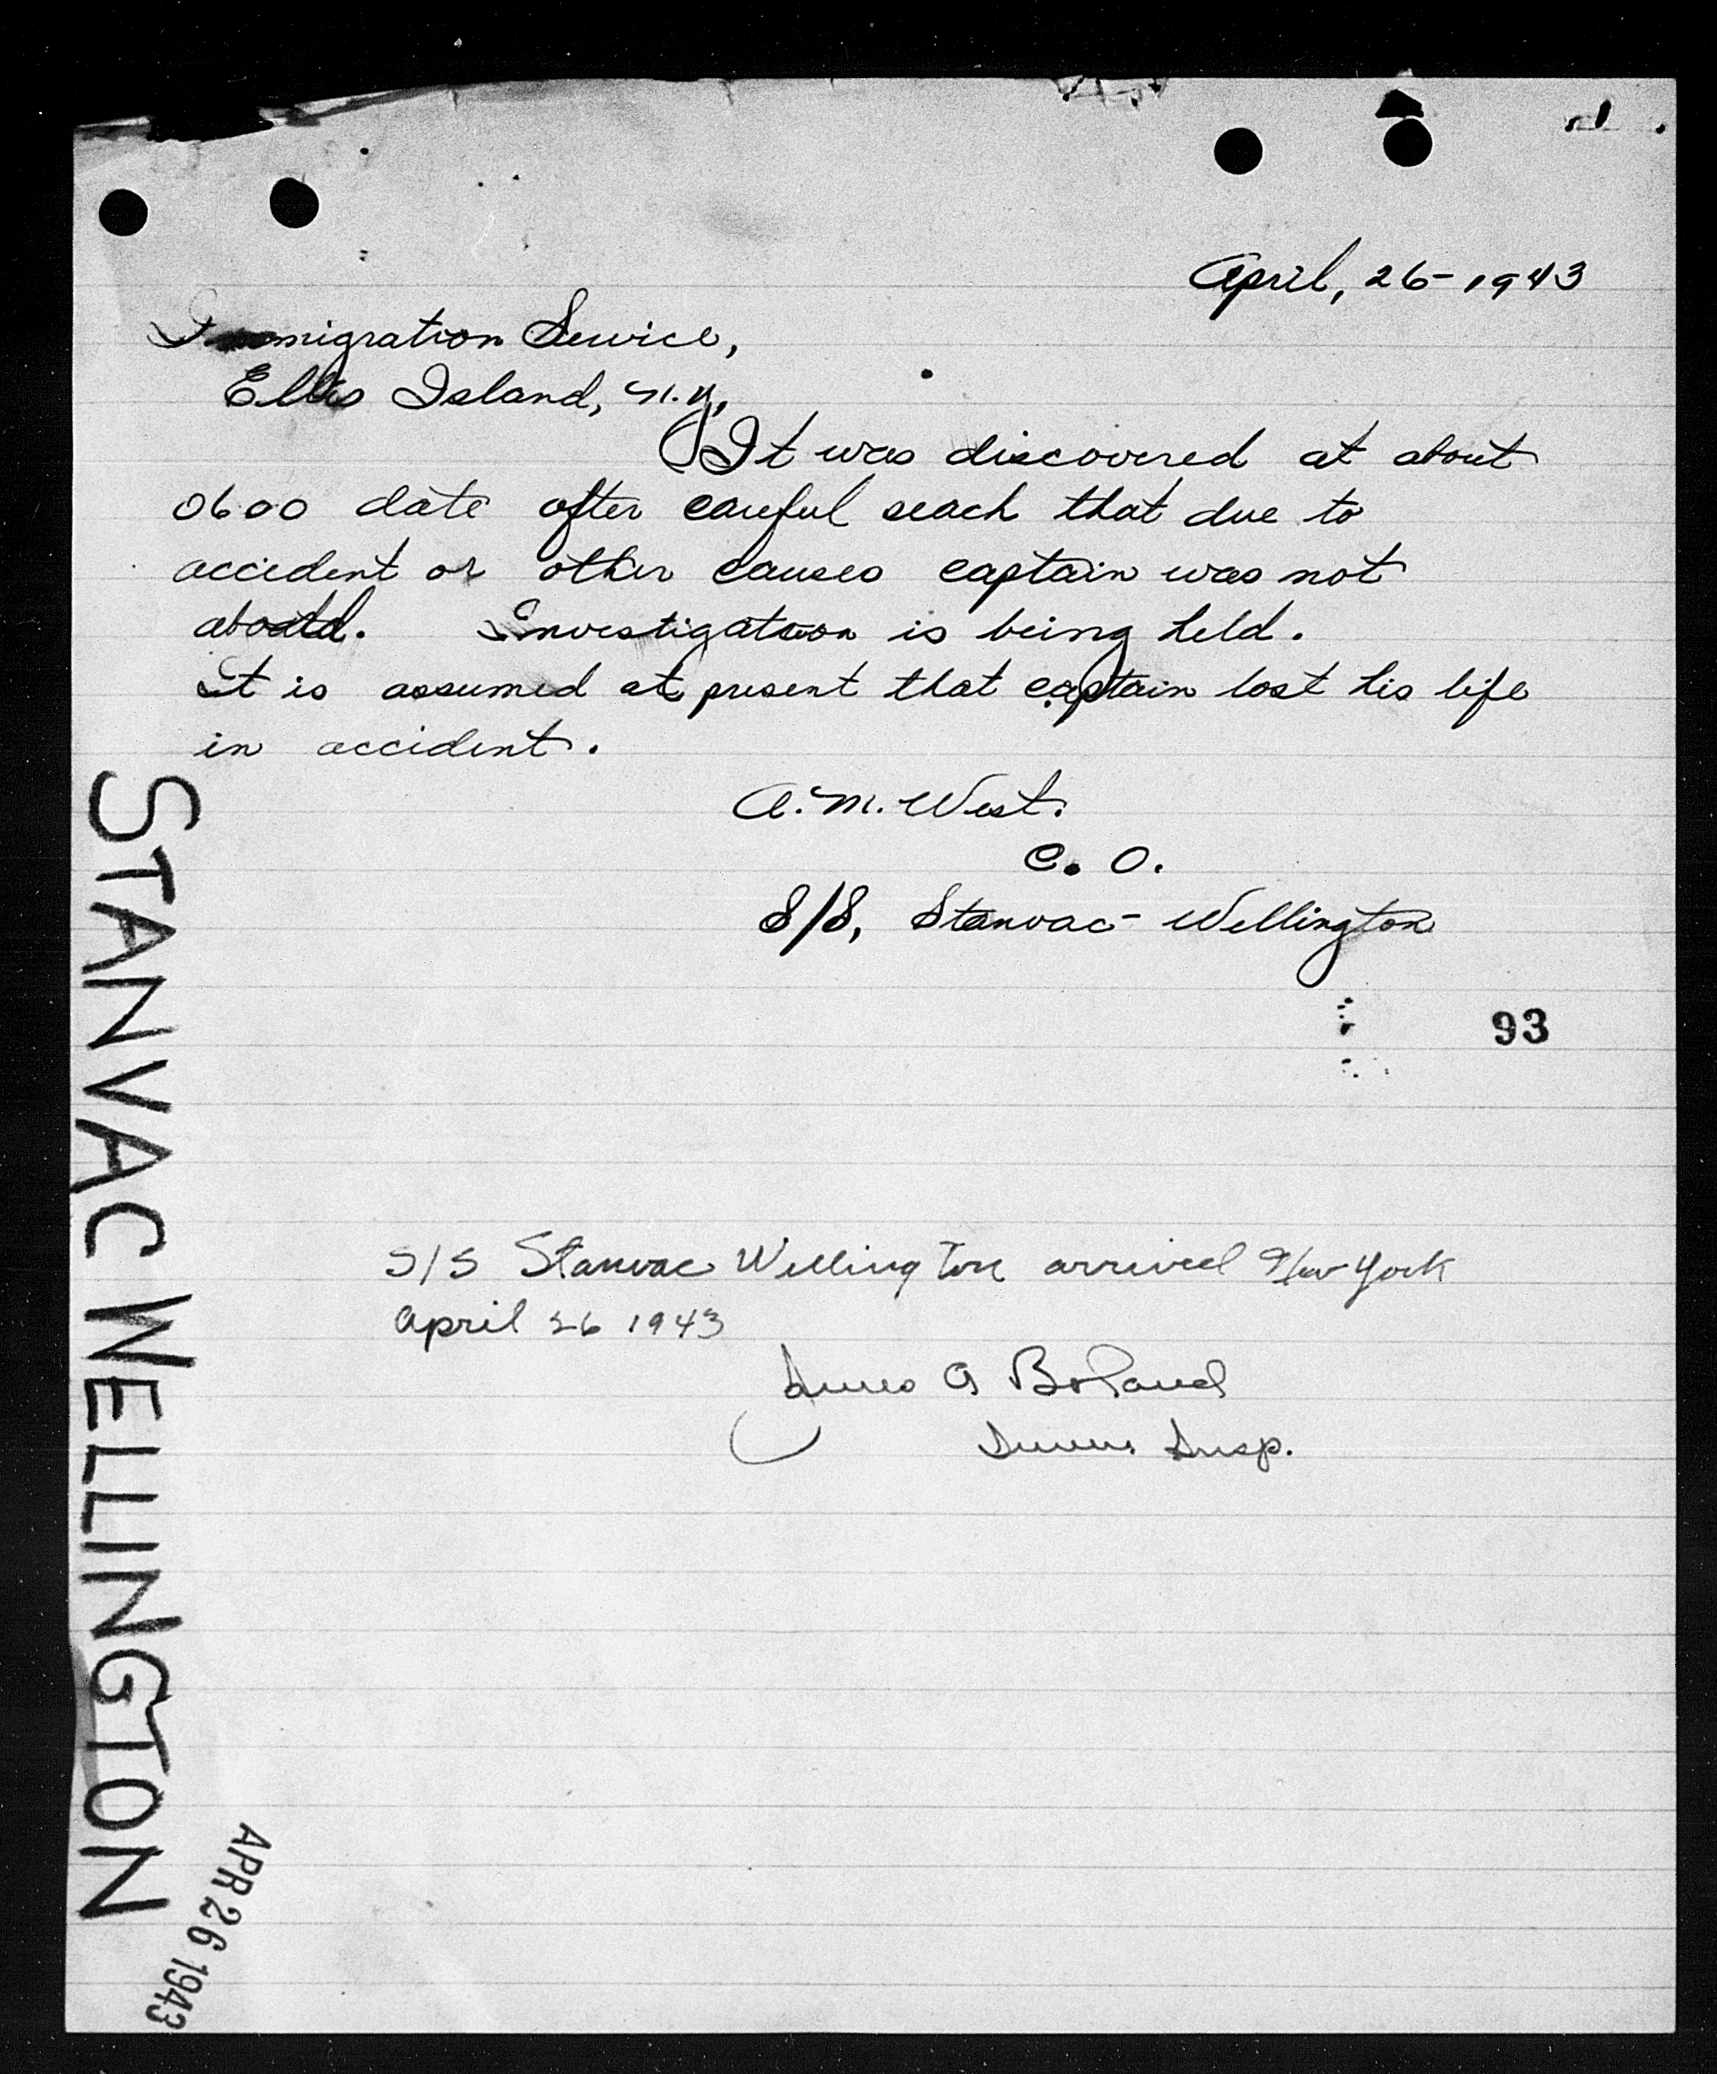 April, 26-1943
Immigration Service,
Ellis Island, N.Y.
It was discovered at about
0600 date after careful seach that due to
accident or other causes captain was not
aboatd. Investigation is being held.
It is assumed at present that captain lost his life
in accident.
A. M. West.
C. O.
S/S, Stanvac- Wellington
93
S/S Stanvac Wellington arrived New York
April 26 1943
James A Boland
Immi. Insp.
STANVAC WELLINGTON
APR 26 1943